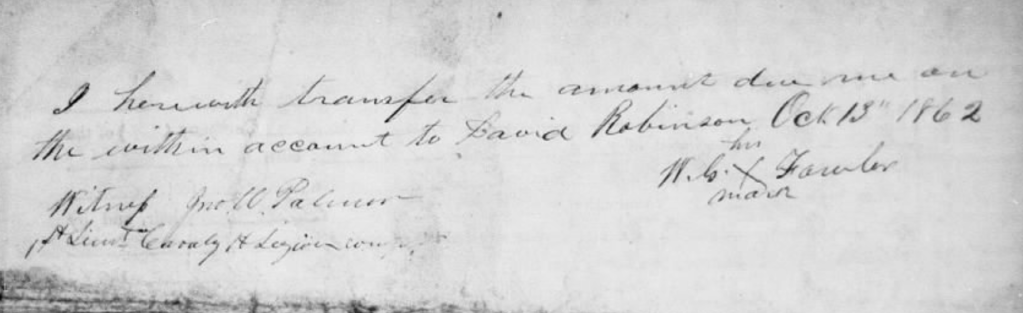 I herewith transfer the amount due me on
the within account to David Robinson Oct 13th 1862
his
W. G. X Fowler
mark
Witness Jno. W. Palmer
1st Lieut Cavaly H Legion